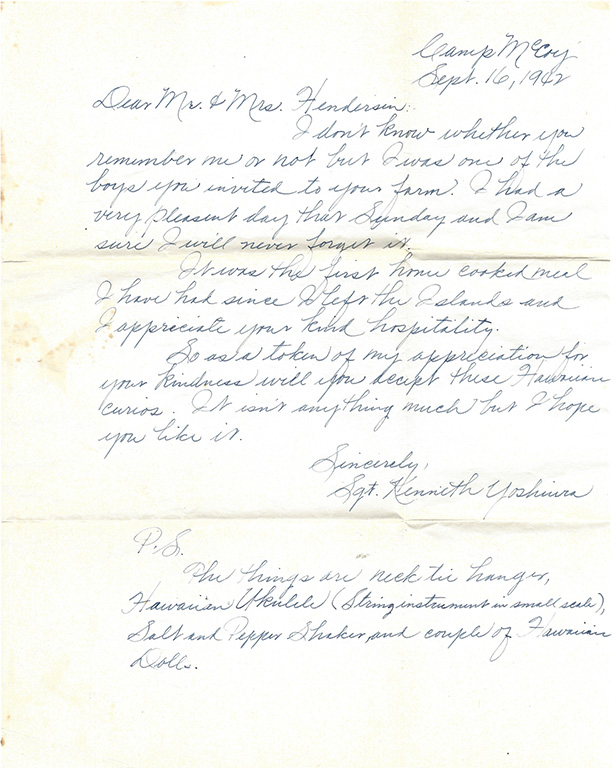 Camp McCoy
Sept. 16, 1942
Dear Mr. & Mrs. Hendersin:
I don't know whether you
remember me or not but I was one of the
boys you invited to your farm. I had a
very pleasent day that Sunday and I am
sure I will never forget it.
It was the first home cooked meal
I have had since I left the Islands and
I appreciate your kind hospitality.
So as a token of my appreciation for
your kindness will you accept these Hawaiian
curios. It isn't anything much but I hope
you like it.
Sincerely,
Sgt. Kenneth Yoshiura
P.S.
The things are neck tie hanger,
Hawaiian Ukulele (String instrument in small scale),
Salt and Pepper Shaker, and couple of Hawaiian
Dolls.